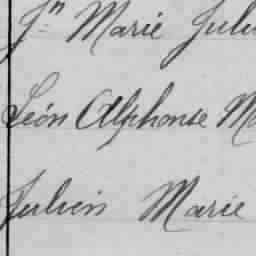 Jn Marie Juli
Léon Alphonse Ma
Julien Marie